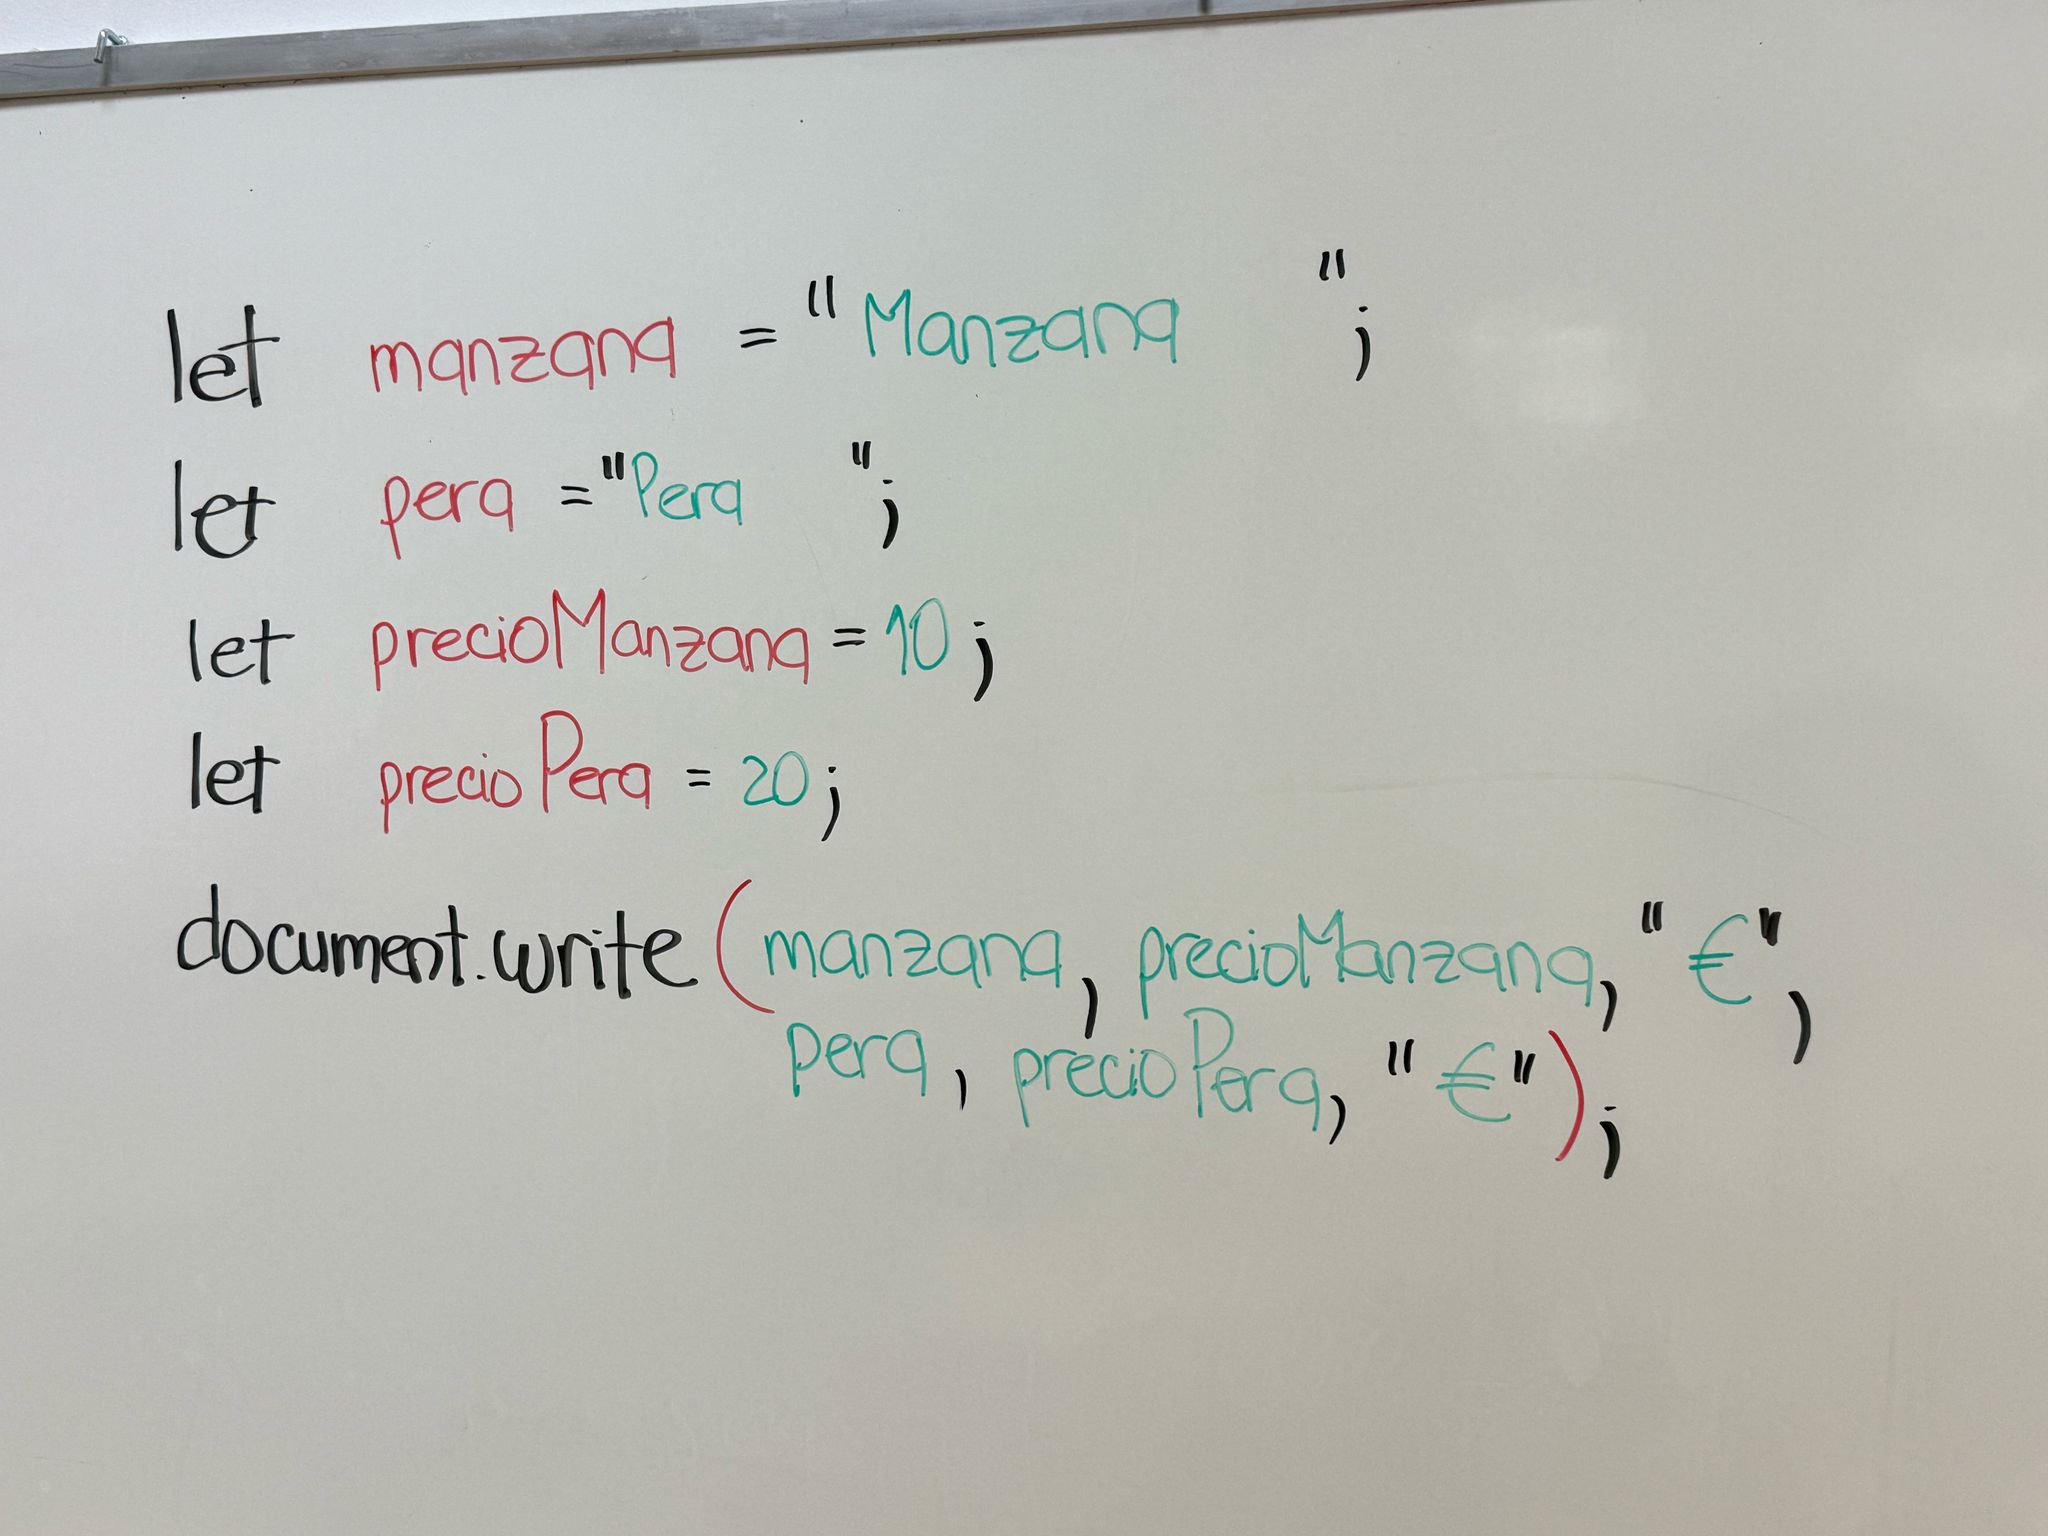 let manzana = "Manzana    ";
let pera = "Pera    ";
let precioManzana = 10;
let precioPera = 20;
document.write(manzana, precioManzana, " €",
pera, precioPera, " €");